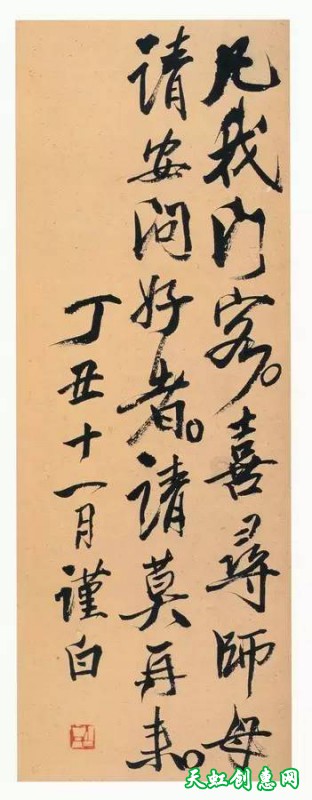 凡我门客。喜尋師母
请安问好者。请莫再来。
丁丑十一月谨白
天虹创惠网